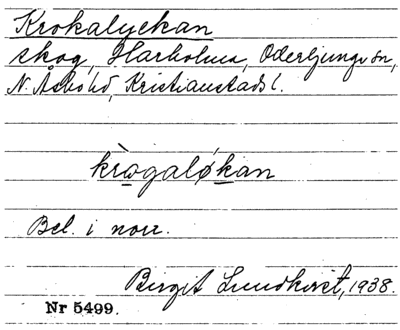 Krokalyckan
skog, Harholma, Oderljunga sn,
N. Åsbo hd, Kristianstads l.
krɷ̀galø̀kan
Bel. i norr.
Birgit Lundkvist, 1938.
Nr 5499.